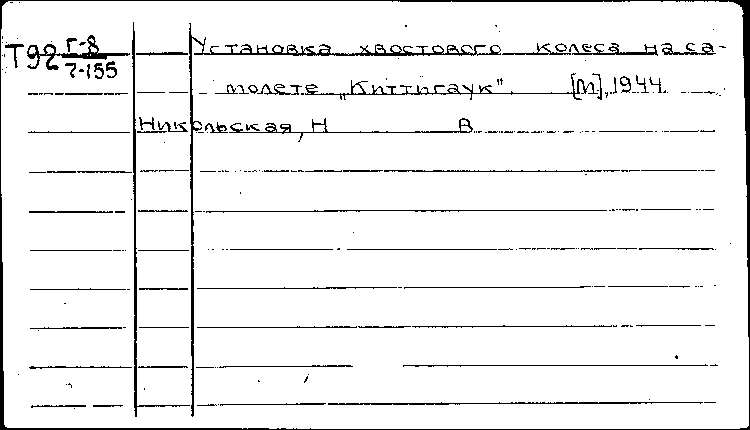 Т92 Г-8
7-155
Установка хвостового колеса на са-
молете „Киттигаук". [М], 1944.
Никольская, Н В